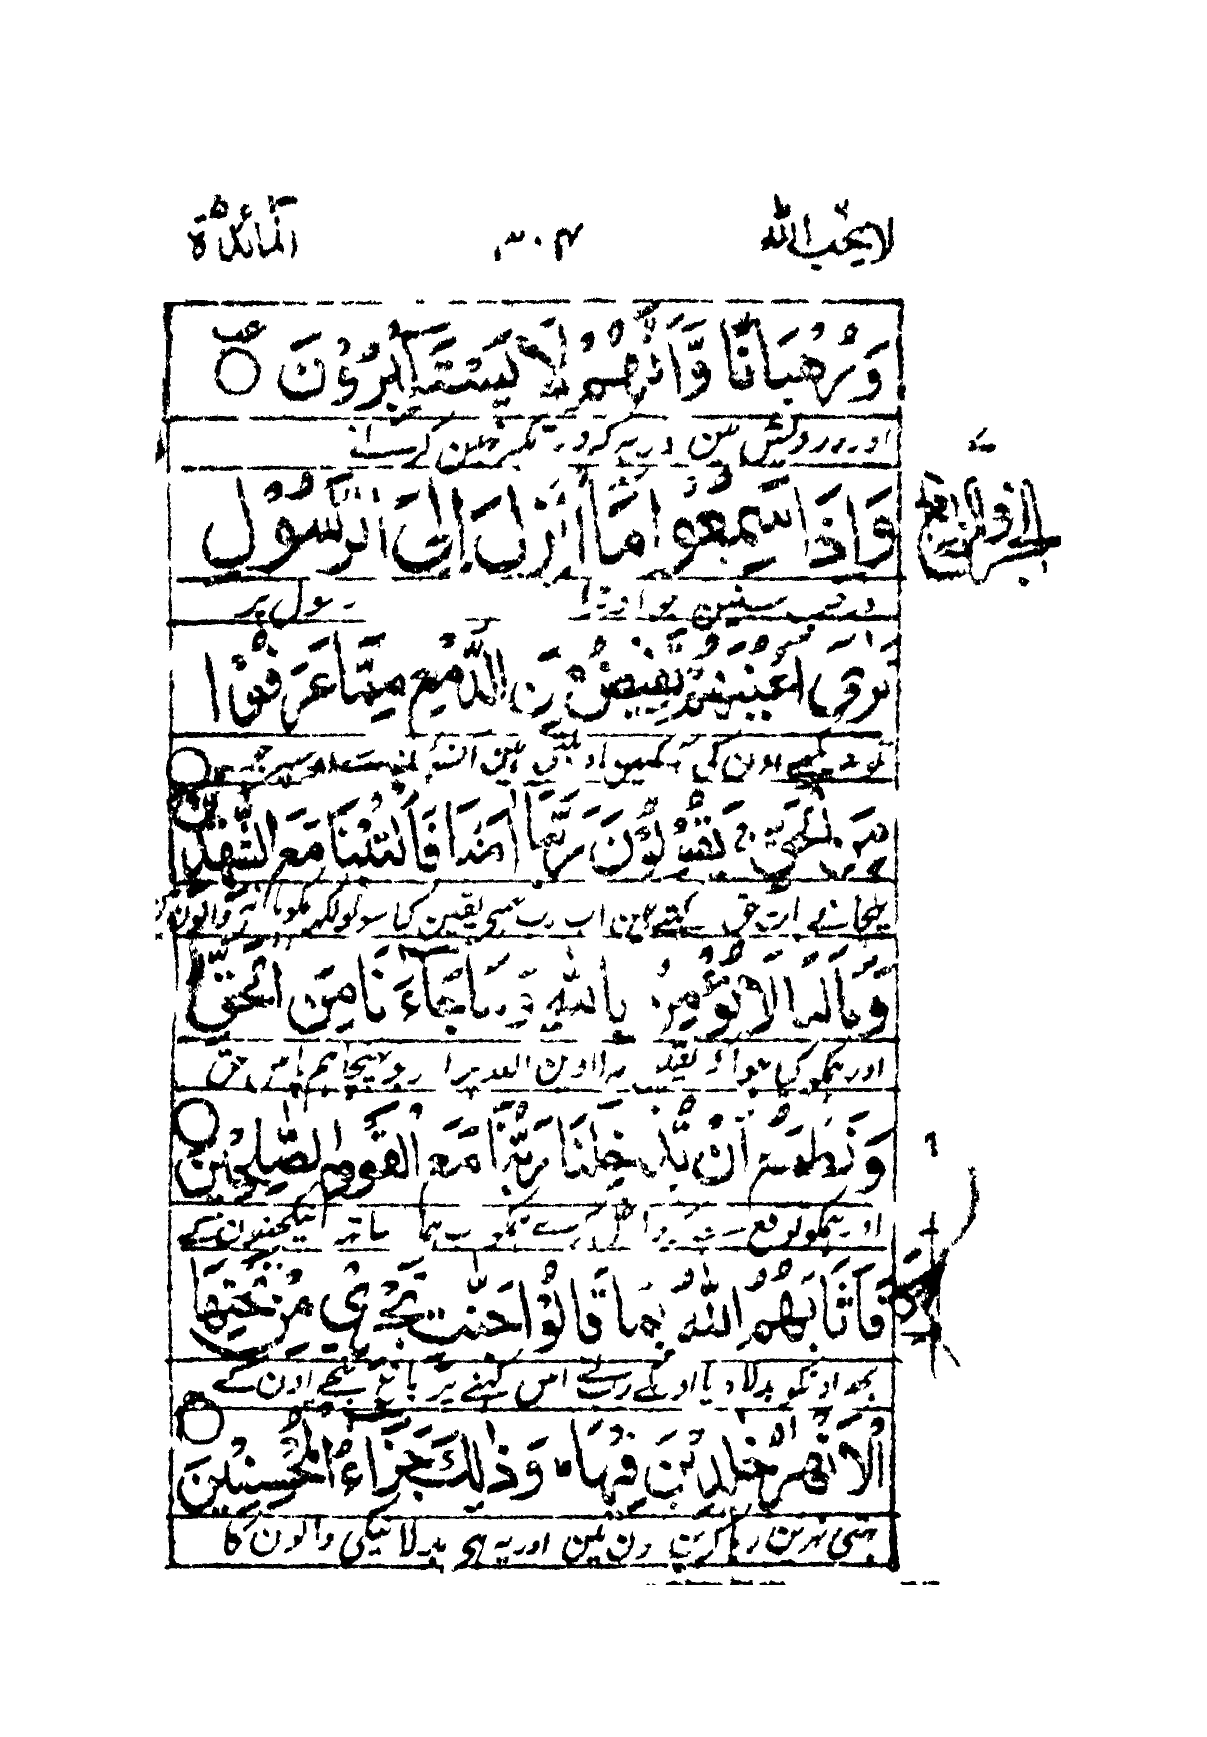 لا يحب الله ٣٠٤ المائدة
وَرُهْبَانًا وَّاَنَّهُمْ لَا يَسْتَكْبِرُوْنَ
اور درویش ہین اور یہ کہ وہ تکبر نہین کرتے
وَاِذَا سَمِعُوْا مَآ اُنْزِلَ اِلَى الرَّسُوْلِ
سنین جو اوترا رسول پر
تَرٰٓى اَعْيُنَهُمْ تَفِيْضُ مِنَ الدَّمْعِ مِمَّا عَرَفُوْا
تو دیکھے اون کی آنکھین ہین آنسو
مِنَ الْحَقِّ يَقُوْلُوْنَ رَبَّنَآ اٰمَنَّا فَاكْتُبْنَا مَعَ الشّٰهِدِيْنَ
بات حق کہتے ہین اے رب ہمنے یقین کیا سو تو لکھ ہمکو ماننے والون
وَمَا لَنَا لَا نُؤْمِنُ بِاللّٰهِ وَمَا جَآءَنَا مِنَ الْحَقِّ
اور ہمکو کیا ہوا کہ یقین نہ لاوین اللہ پر اور جو پہنچا ہم پاس حق
وَنَطْمَعُ اَنْ يُّدْخِلَنَا رَبُّنَا مَعَ الْقَوْمِ الصّٰلِحِيْنَ
اور ہمکو توقع ہے کہ داخل کرے ہمکو رب ہمارا ساتھ نیکبختون کے
فَاَثَابَهُمُ اللّٰهُ بِمَا قَالُوْا جَنّٰتٍ تَجْرِيْ مِنْ تَحْتِهَا
پھر اونکو بدلا دیا اونکے رب نے اس کہنے پر باغ نیچے اون کے
الْاَنْهٰرُ خٰلِدِيْنَ فِيْهَا وَذٰلِكَ جَزَآءُ الْمُحْسِنِيْنَ
بہتی نہرین رہا کرین ان مین اور یہ ہی بدلا نیکی والون کا